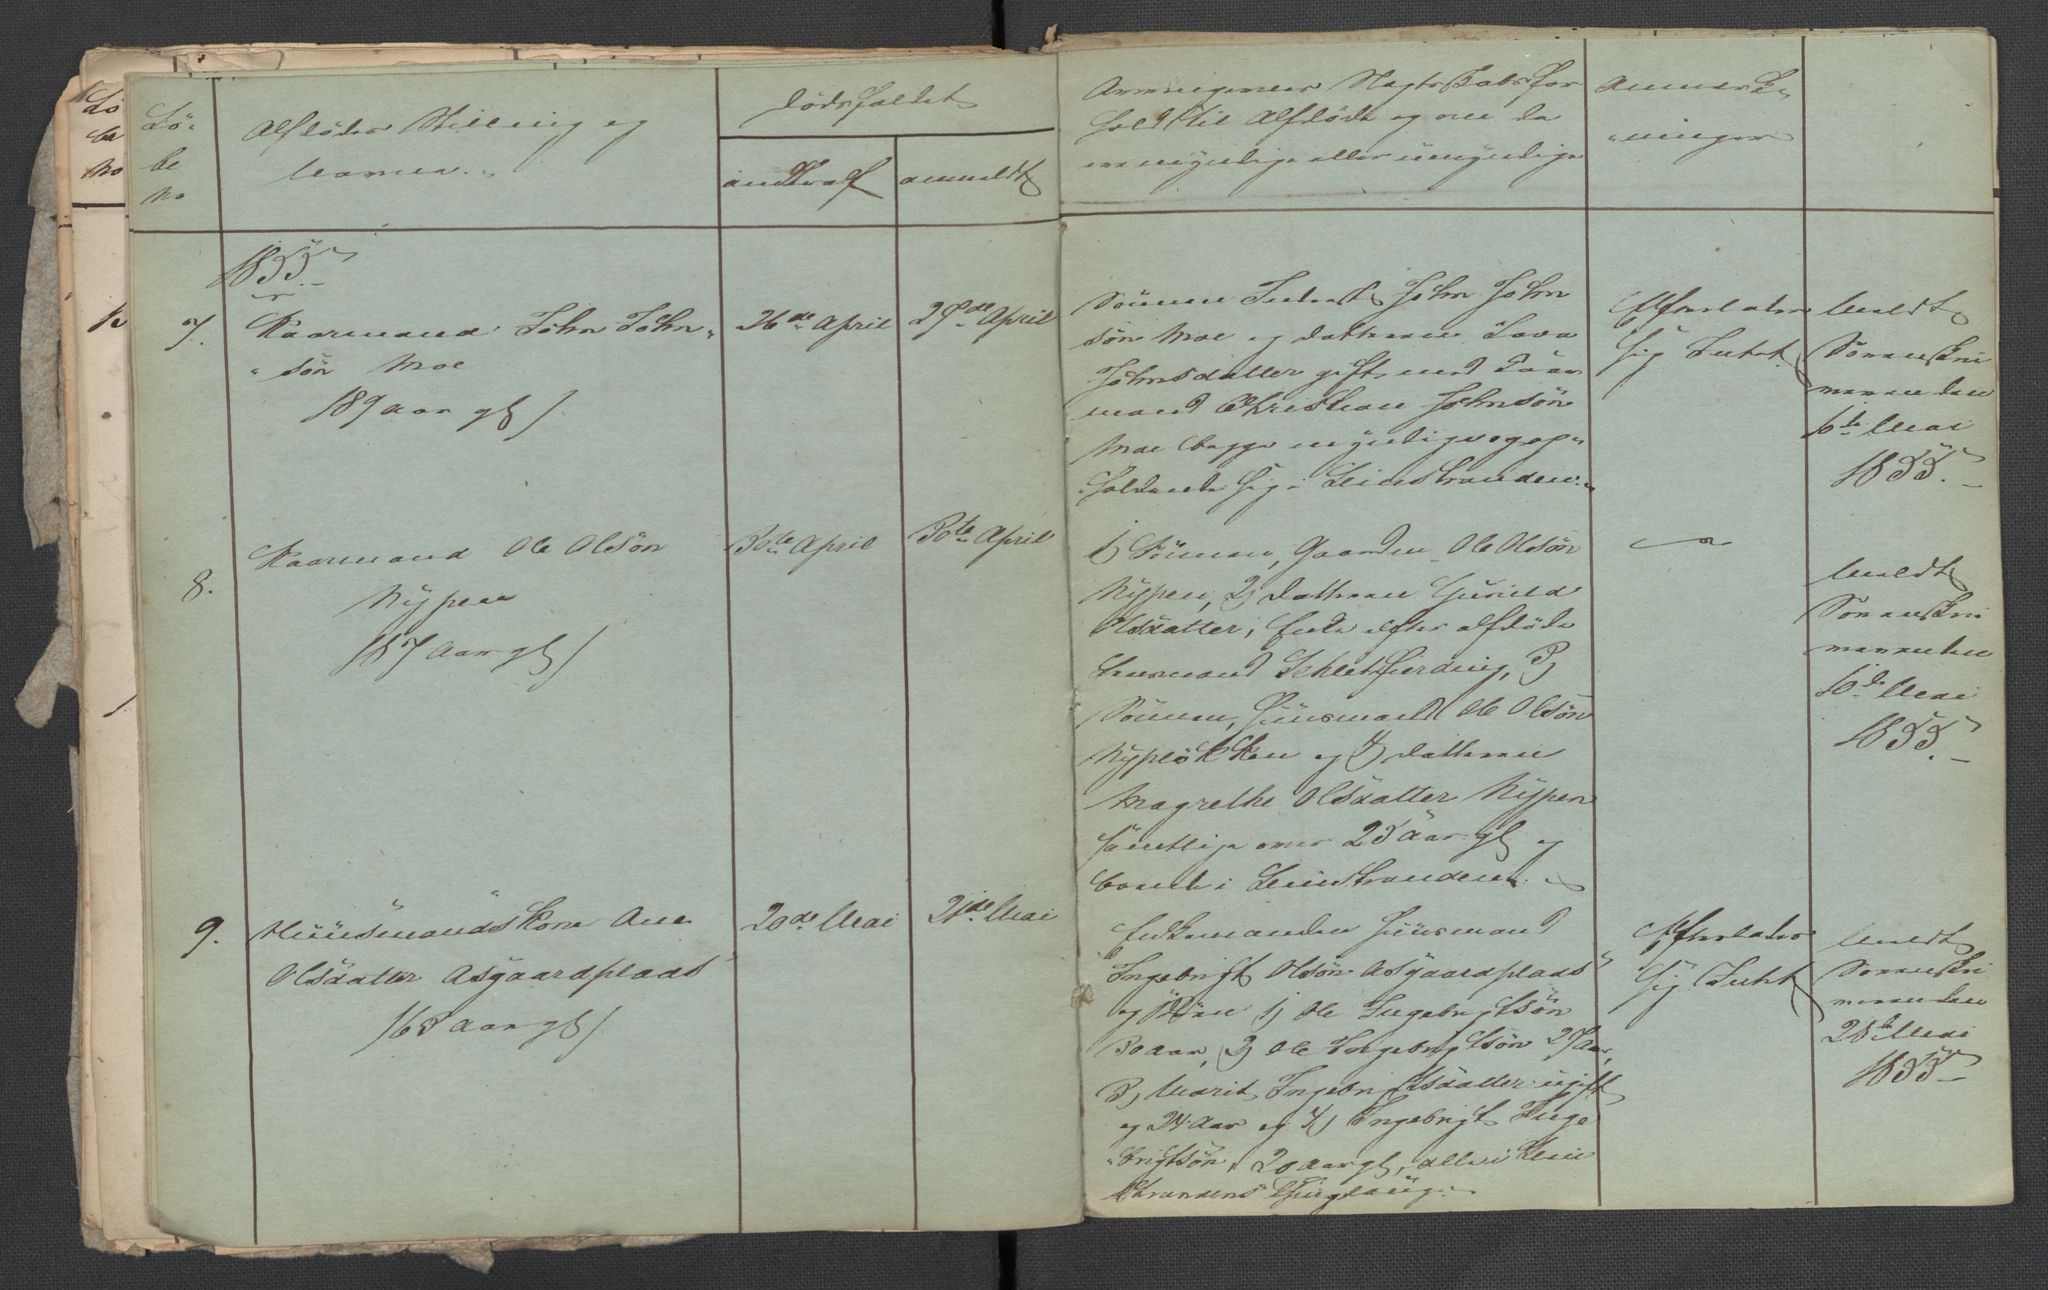 Lø-
be
No
Afdødes Stilling og
Navne.
Dødsfaldet
indtraf
anmeldt
Arvingernes Slægtskabsfor
hold til Afdøde og om de
ere myndige eller umyndige
Anmærk-
ninger
1855.
7.
Kaarmand John John-
søn Moe
(89 aar gl)
26de April
27de April
Sønnen Inderst John John
søn Moe og datteren
Johnsdatter gift med Gaar
mand Christian Johnsøn
Moe begge myndige og op-
holdende sig i Leinstranden.
Efterlader
sig Intet
Meldt
Sorenskri
veren den
6de Mai
1855.
8.
Kaarmand Ole Olsøn
Nypen
(87 aar gl)
30te April
30te April
1) Sønnen, Gaardm. Ole Olsøn
Nypen, 2) datteren Gunild
Olsdatter, Enke efter afdøde
Huusmand 3)
Sønnen, Huusmand Ole Olsøn
Nypløkken og 4) datteren
Magrethe Olsdatter Nypen
samtlige over 25 Aar gl og
boende i Leinstranden.
Meldt
Sorenskri
veren den
6de Mai
1855.
9.
Huusmandskone Ane
Olsdatter Asgaardplads
(63 aar gl)
20de Mai
21de Mai
Enkemanden Huusmand
Ingebrigt Olsøn Asgaardplads
og Børn 1) Ole Ingebrigtsøn
30 aar, 2) Ole Ingebrigtsøn 27 Aar,
3) Marit Ingebrigtsdatter ugift
og 24 Aar og 4) Ingebrigt Inge
brigtsøn, 20 aar gl, alle i Lein
strandens Thinglaug.
Efterlader
sig Intet
Meldt
Sorenskri
veren den
25de Mai
1855